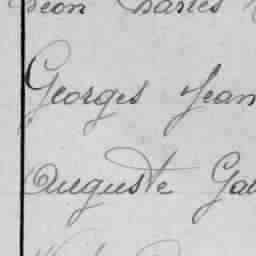 Léon Charles
Georges Jean
Auguste Ga